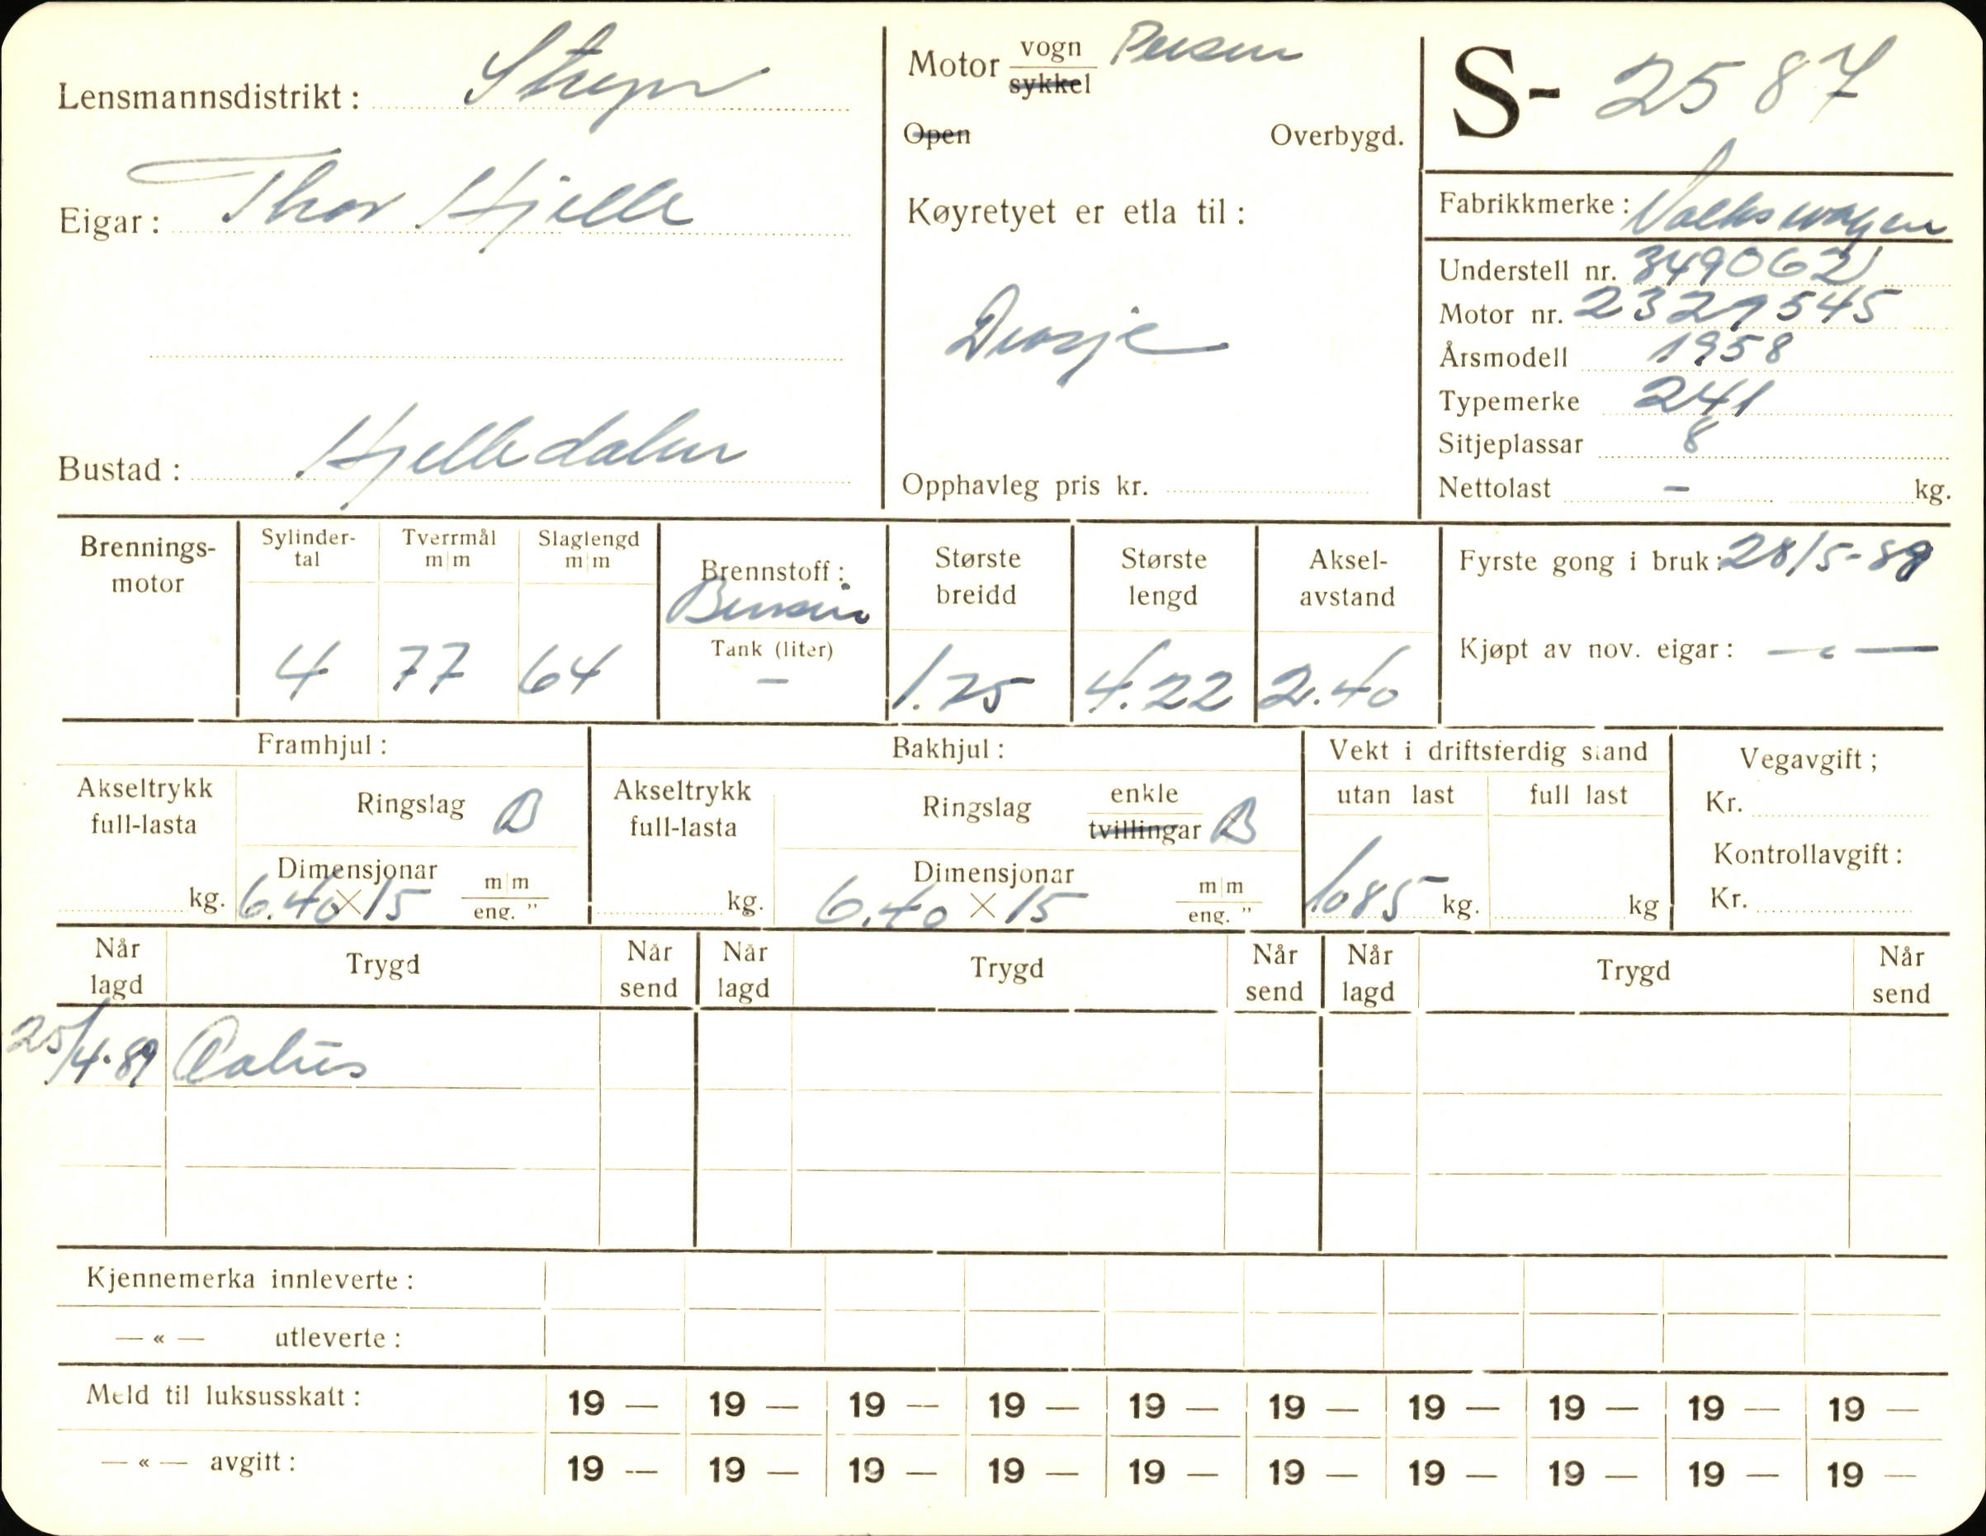 Lensmannsdistrikt : Stryn
Eigar : Thor Hjelle
Bustad : Hjelledalen
Motor vogn Person
sykkel
Open Overbygd.
Køyretyet er etla til :
Drosje
Opphavleg pris kr.
S- 2587
Fabrikkmerke : Volkswagen
Understell nr. 349062
Motor nr. 2321545
Årsmodell 1958
Typemerke 241
Sitjeplassar 8
Nettolast - kg.
Brennings-
motor
Sylinder-
tal
4
Tverrmål
m|m
77
Slaglengd
m|m
64
Brennstoff :
Bensin
Tank (liter)
-
Største
breidd
1.75
Største
lengd
4.22
Aksel-
avstand
2.40
Fyrste gong i bruk : 28/5-
Kjøpt av nov. eigar : — " —
Framhjul :
Akseltrykk
full-lasta
kg.
Ringslag B
Dimensjonar
6.40 × 15 m|m
eng. "
Bakhjul :
Akseltrykk
full-lasta
kg.
Ringslag enkle
tvillingar B
Dimensjonar
6.40 × 15 m|m
eng. "
Vekt i driftsferdig stand
utan last full last
1085 kg. kg
Vegavgift ;
Kr.
Kontrollavgift :
Kr.
Når
lagd Trygd Når
send Når
lagd Trygd Når
send Når
lagd Trygd Når
send
25/4-89
Kjennemerka innleverte :
— « — utleverte :
Meld til luksusskatt : 19 — 19 — 19 — 19 — 19 — 19 — 19 — 19 — 19 — 19 —
— « — avgift : 19 — 19 — 19 — 19 — 19 — 19 — 19 — 19 — 19 — 19 —